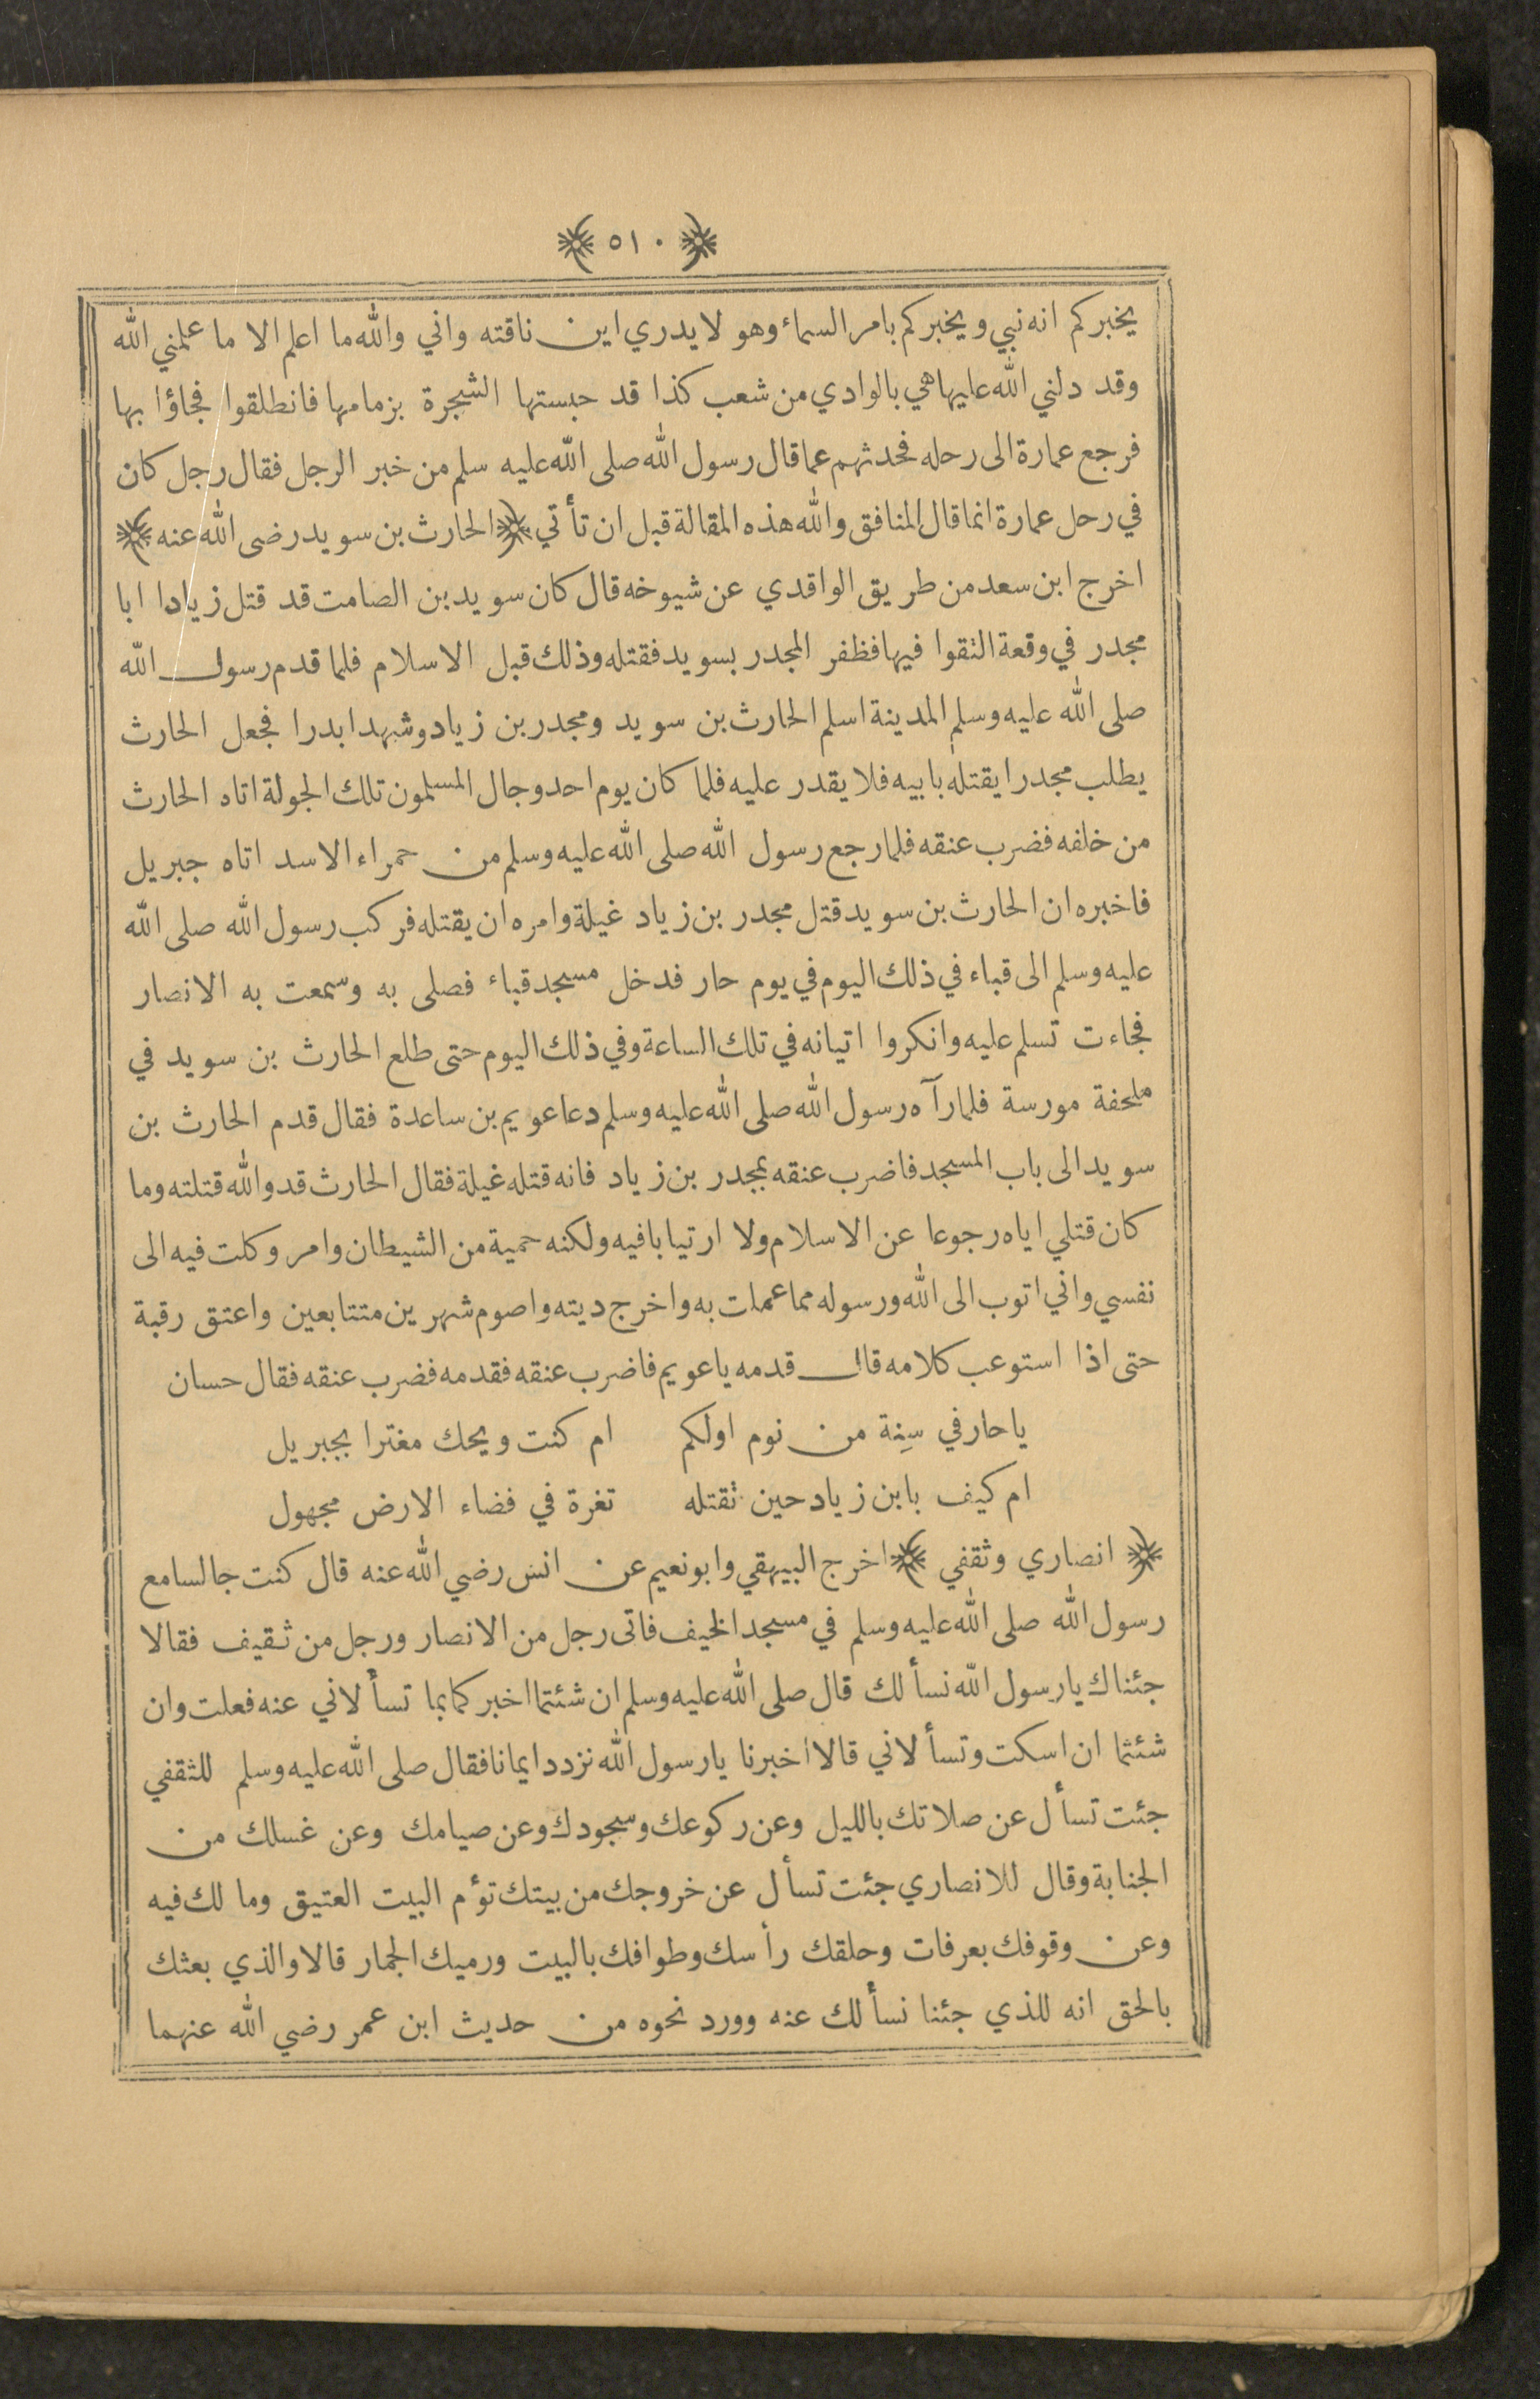 ﴿ ٥١٠ ﴾
يخبركم انه نبي ويخبركم بامر السماء وهو لا يدري اين ناقته واني والله ما اعلم الا ما علمني الله
وقد دلني الله عليها هي بالوادي من شعب كذا قد حبستها الشجرة بزمامها فانطلقوا فجاؤا بها
فرجع عمارة الى رحله فحدثهم عما قال رسول الله صلى الله عليه سلم من خبر الرجل فقال رجل كان
في رحل عمارة انما قال المنافق والله هذه المقالة قبل ان تأتي ﴿ الحارث بن سويد رضى الله عنه ﴾
اخرج ابن سعد من طريق الواقدي عن شيوخه قال كان سويد بن الصامت قد قتل زيادا ابا
مجدر في وقعة التقوا فيها فظفر المجدر بسويد فقتله وذلك قبل الاسلام فلما قدم رسول الله
صلى الله عليه وسلم المدينة اسلم الحارث بن سويد ومجدر بن زياد وشهدا بدرا فجعل الحارث
يطلب مجدرا يقتله بابيه فلا يقدر عليه فلما كان يوم احد وجال المسلمون تلك الجولة اتاه الحارث
من خلفه فضرب عنقه فلما رجع رسول الله صلى الله عليه وسلم من حمراء الاسد اتاه جبريل
فاخبره ان الحارث بن سويد قتل مجدر بن زياد غيلة وامره ان يقتله فركب رسول الله صلى الله
عليه وسلم الى قباء في ذلك اليوم في يوم حار فدخل مسجد قباء فصلى به وسمعت به الانصار
فجاءت تسلم عليه وانكروا اتيانه في تلك الساعة وفي ذلك اليوم حتى طلع الحارث بن سويد في
ملحفة مورسة فلما رآه رسول الله صلى الله عليه وسلم دعا عويم بن ساعدة فقال قدم الحارث بن
سويد الى باب المسجد فاضرب عنقه بمجدر بن زياد فانه قتله غيلة فقال الحارث قد والله قتلته وما
كان قتلي اياه رجوعا عن الاسلام ولا ارتيابا فيه ولكنه حمية من الشيطان وامر وكلت فيه الى
نفسي واني اتوب الى الله ورسوله مما عملت به واخرج ديته واصوم شهرين متتابعين واعتق رقبة
حتى اذا استوعب كلامه قال قدمه يا عويم فاضرب عنقه فقدمه فضرب عنقه فقال حسان
يا حار في سِنة من نوم اولكم ام كنت ويحك مغترا بجبريل
ام كيف بابن زياد حين تقتله تغرة في فضاء الارض مجهول
﴿ انصاري وثقفي ﴾ اخرج البيهقي وابو نعيم عن انس رضي الله عنه قال كنت جالسا مع
رسول الله صلى الله عليه وسلم في مسجد الخيف فاتى رجل من الانصار ورجل من ثقيف فقالا
جئناك يا رسول الله نسألك قال صلى الله عليه وسلم ان شئتما اخبركما بما تسألاني عنه فعلت وان
شئتما ان اسكت وتسألاني قالا اخبرنا يا رسول الله نزدد ايمانا فقال صلى الله عليه وسلم للثقفي
جئت تسأل عن صلاتك بالليل وعن ركوعك وسجودك وعن صيامك وعن غسلك من
الجنابة وقال للانصاري جئت تسأل عن خروجك من بيتك تؤم البيت العتيق وما لك فيه
وعن وقوفك بعرفات وحلقك رأسك وطوافك بالبيت ورميك الجمار قالا والذي بعثك
بالحق انه للذي جئنا نسألك عنه وورد نحوه من حديث ابن عمر رضي الله عنهما